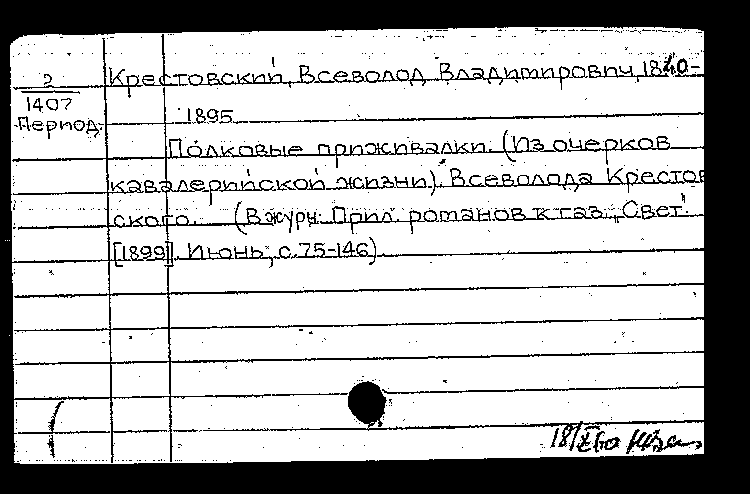 Крестовский, Всеволод Владимирович, 1840-
2
1407
Период.
1895
Полковые приживалки. (Из очерков
кавалерийской жизни). Всеволода Крестов
ского. (В журн: Прил. романов к газ. „Свет"
[1899]. Июнь, с. 75-146).
18/XI60